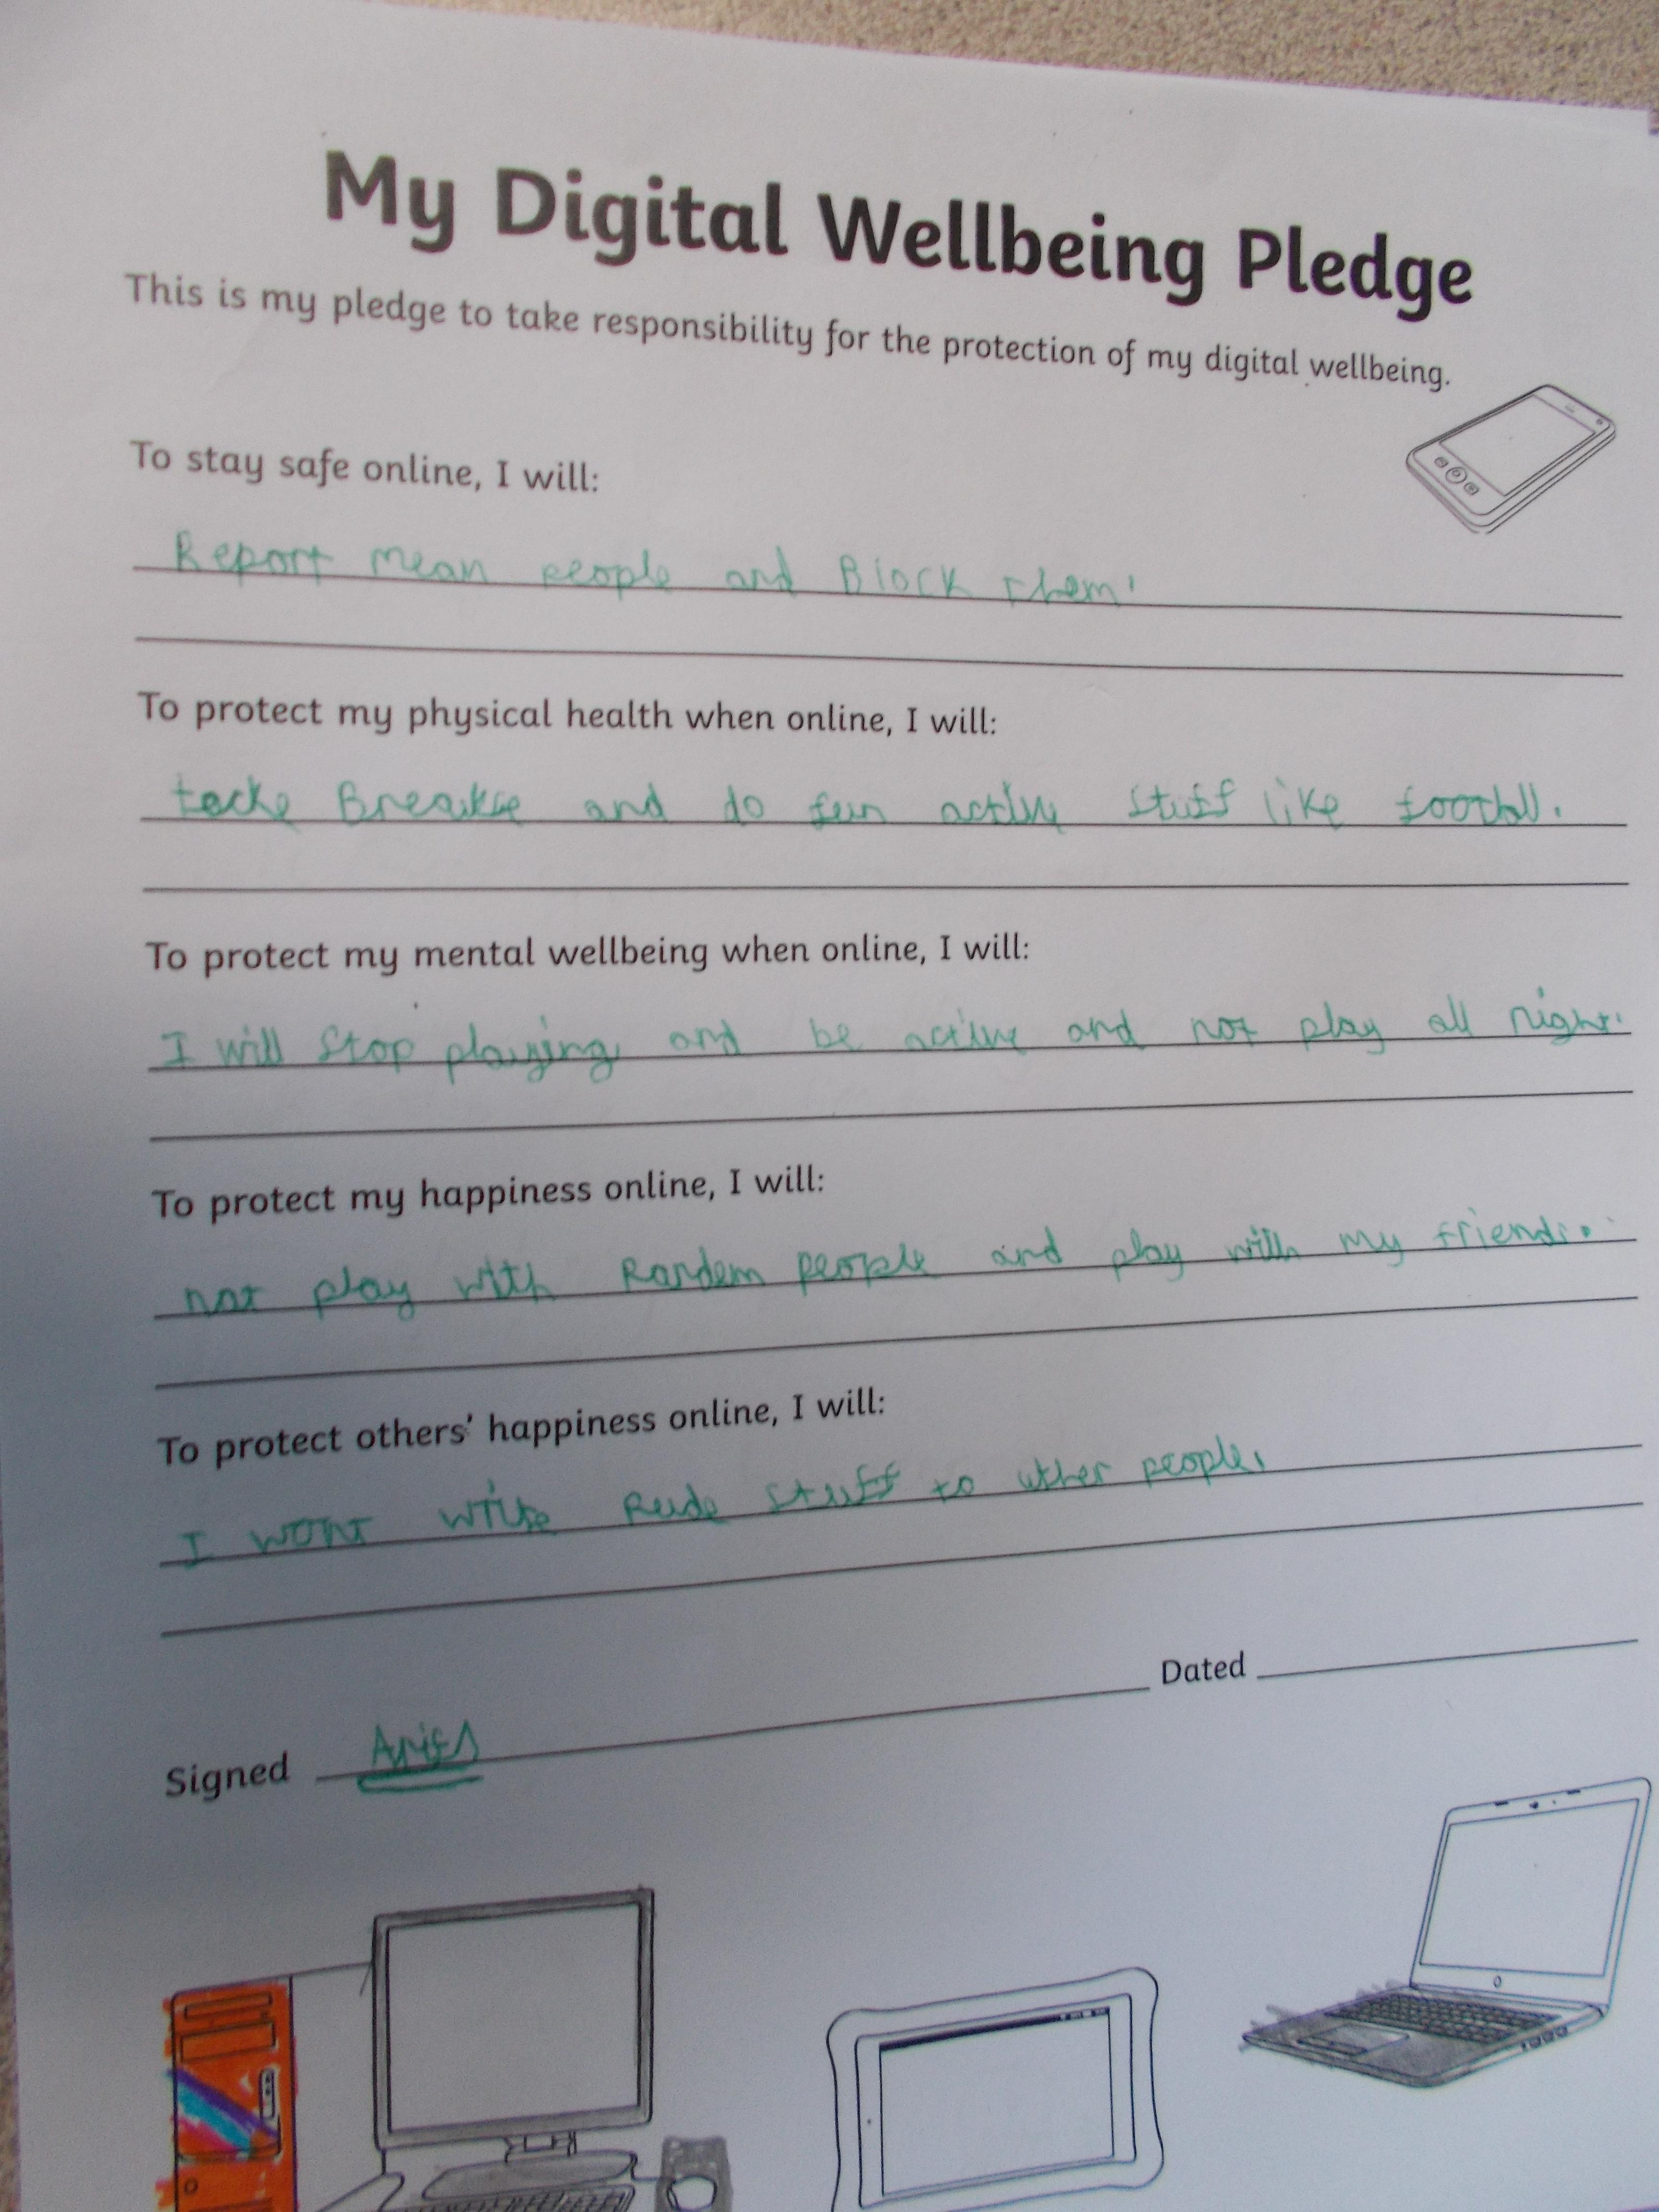 My Digital Wellbeing Pledge
This is my pledge to take responsibility for the protection of my digital wellbeing.
To stay safe online, I will:
Report mean people and Block them.
To protect my physical health when online, I will:
tacke Breakse and do fun active stuff like footbll.
To protect my mental wellbeing when online, I will:
I will stop playing and be active and not play all night.
To protect my happiness online, I will:
not play with Random people and play with my friends.
To protect others' happiness online, I will:
I wont write Rude stuff to other people.
Dated
Signed